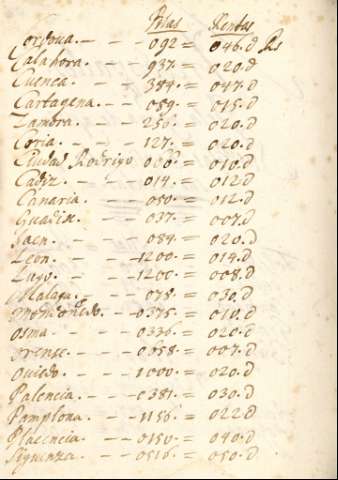 Pilas Rentas
Cordova. - - - 092 = 046.d Rs
Calahora. - - 937. = 020.d
Cuenca. - - - 384. = 047.d
Cartagena. - - 089. = 015.d
Zamora. - - - 256. = 020.d
Coria. - - - 127. = 020.d
Ciudad Rodrigo = 010.d
Cadiz. - - - 014. = 012d
Canaria. - - - 050. = 012.d
Guadix. - - - 037. = 007.d
Jaen. - - - 084. = 020.d
Leon. - - - 1200. = 014.d
Lugo. - - - 1200. = 008.d
Malaga. - - - 078. = 030.d
Mondoñedo. - - 0375. = 010.d
Osma. - - - 0336. = 020.d
Orense. - - - 0658. = 007.d
Oviedo. - - - 1000. = 020.d
Palencia. - - - 0381. = 030.d
Pamplona. - - 1156. = 022d
Placencia. - - 0150. = 040.d
Siguenza. - - 0516. = 050.d